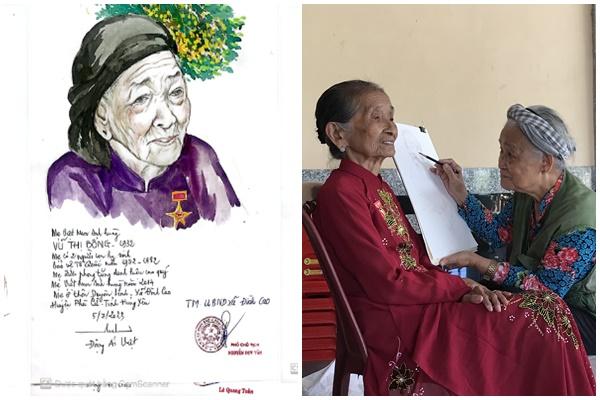 Mẹ Việt Nam Anh hùng
VŨ THỊ BÔNG - 1932
Mẹ có 2 người con hy sinh
bảo vệ Tổ Quốc năm 1972 - 1982
Mẹ được phong tặng danh hiệu cao quý
Mẹ Việt Nam anh hùng năm 2014
Mẹ ở thôn Duyên Linh - Xã Đình Cao
Huyện Phù Cừ - Tỉnh Hưng Yên
5/2/2023
Đặng Ái Việt
TM UBND xã Đình Cao
PHÓ CHỦ TỊCH
NGUYỄN DUY TÂN
Được quét bằng CamScanner
Lê Quang Toản